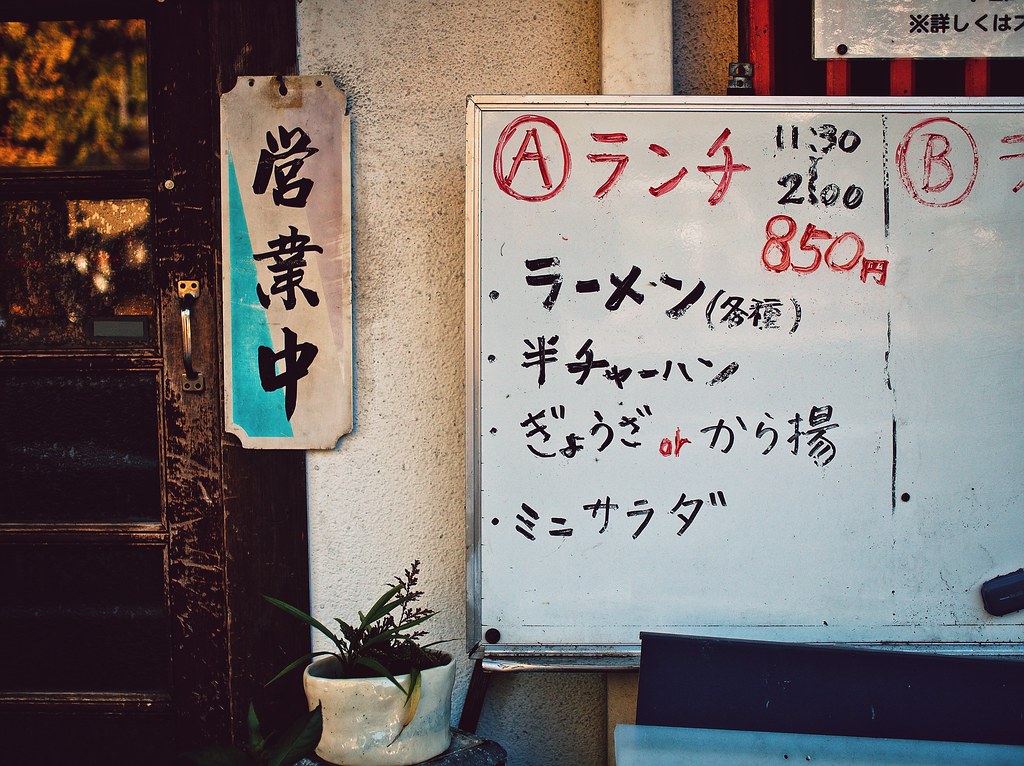 営業中
※詳しくは
Ⓐランチ 11:30
〜
2:00
850円
Ⓑ
・ラーメン(各種)
・半チャーハン
・ぎょうざ or から揚
・ミニサラダ